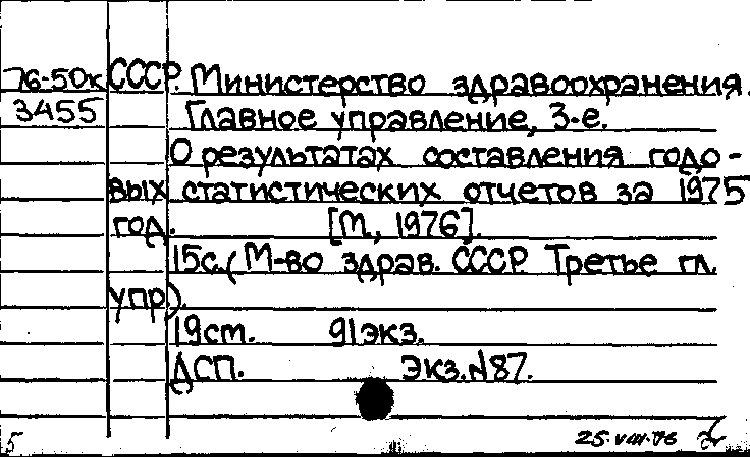 76-50к СССР. Министерство здравоохранения.
3455 Главное управление, 3-е.
О результатах составления годо-
вых статистических отчетов за 1975
год. [М., 1976].
15с. (М-во здрав. СССР. Третье гл.
упр).
19см. 91экз.
ДСП. Экз.№87.
5 25.VIII.76